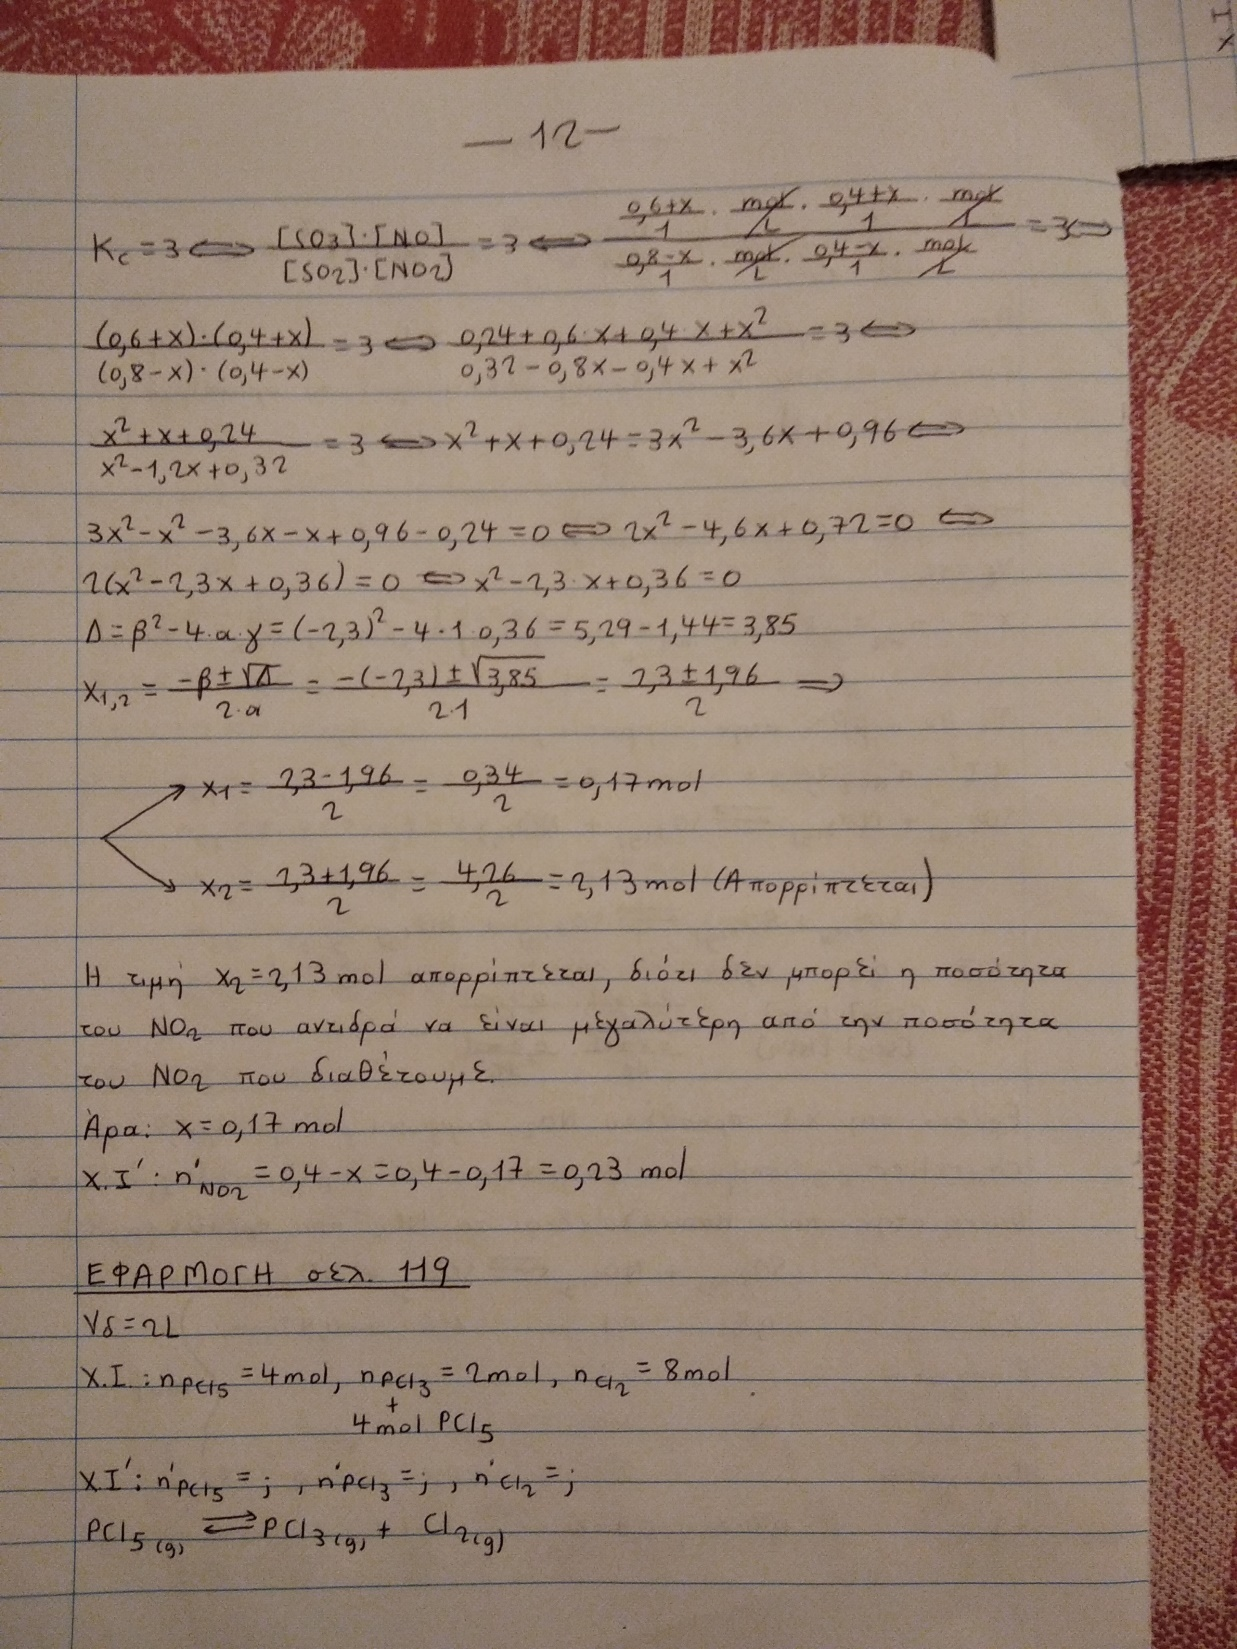 — 12 —
Kc = 3 ⟺ [SO3]·[NO] / [SO2]·[NO2] = 3 ⟺ (0,6+x / 1 · mol/L · 0,4+x / 1 · mol/L) / (0,8-x / 1 · mol/L · 0,4-x / 1 · mol/L) = 3 ⟺
(0,6+x)·(0,4+x) / (0,8-x)·(0,4-x) = 3 ⟺ 0,24+0,6·x+0,4·x+x² / 0,32-0,8x-0,4x+x² = 3 ⟺
x²+x+0,24 / x²-1,2x+0,32 = 3 ⟺ x²+x+0,24=3x²-3,6x+0,96 ⟺
3x²-x²-3,6x-x+0,96-0,24=0 ⟺ 2x²-4,6x+0,72=0 ⟺
2(x²-2,3x+0,36)=0 ⟺ x²-2,3·x+0,36=0
Δ=β²-4·α·γ=(-2,3)²-4·1·0,36=5,29-1,44=3,85
x1,2 = -β±√Δ / 2·α = -(-2,3)±√3,85 / 2·1 = 2,3±1,96 / 2 ⟹
x1 = 2,3-1,96 / 2 = 0,34 / 2 = 0,17 mol
x2 = 2,3+1,96 / 2 = 4,26 / 2 = 2,13 mol (Απορρίπτεται)
Η τιμή x2=2,13 mol απορρίπτεται, διότι δεν μπορεί η ποσότητα
του NO2 που αντιδρά να είναι μεγαλύτερη από την ποσότητα
του NO2 που διαθέτουμε.
Άρα: x=0,17 mol
Χ.Ι': n'NO2 = 0,4-x=0,4-0,17=0,23 mol
ΕΦΑΡΜΟΓΗ σελ. 119
Vδ=2L
Χ.Ι.: nPCl5 = 4mol, nPCl3 = 2mol, nCl2 = 8mol
+
4 mol PCl5
Χ.Ι': n'PCl5 = ; , n'PCl3 = ; , n'Cl2 = ;
PCl5(g) ⇌ PCl3(g) + Cl2(g)